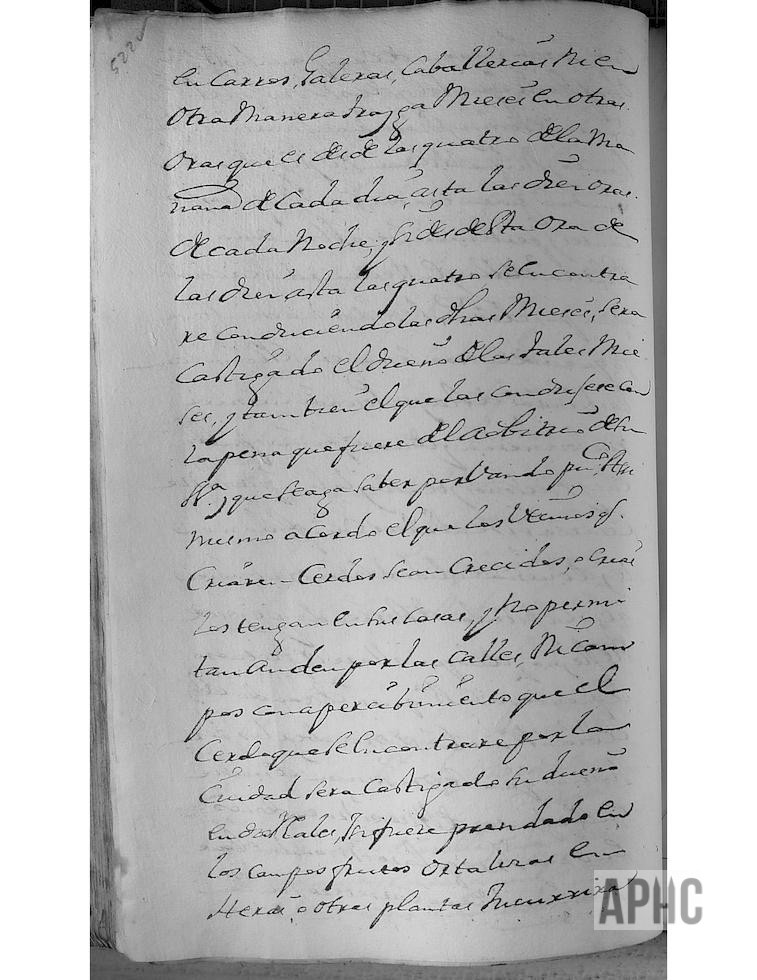 522v
en Carros, Galeras, Caballerias Ni en
Otra Manera trayga Mieses en otras
Oras que es desde las quatro de la Ma
ñana de Cada dia, asta las diez oras
de cada Noche, y si desde esta Ora de
las diez asta las quatro se encontra
re conduciendo las dhas Mieses, sera
Castigado el dueño de las tales Mie
ses, y tambien el que las condujese con
la pena que fuere del adbitrio de su
Sª, y que se aga saber por Vando puco Assi
mismo acordo el que los Vecinos q.
Criaren Cerdos sean Crecidos, o Crias
los tengan en sus Casas, y No permi
tan anden por las Calles, Ni Cam
pos con apercibimiento que el
Cerdo que se encontrare por la
Ciudad sera Castigado su dueño
en dos Rales, si fuere prendado en
los campos frutos Ortalizas en
Heras, o otras plantas Incurrira
APHC